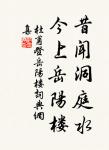 昔聞洞庭水
今上岳陽樓
杜甫登岳陽樓詞典網
喜